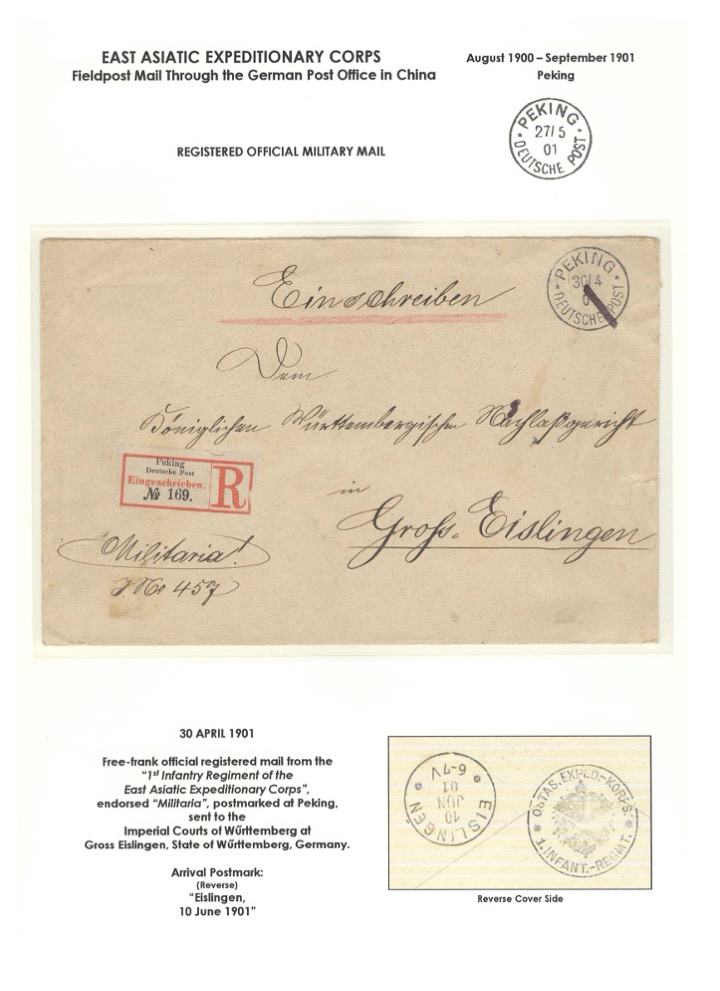 EAST ASIATIC EXPEDITIONARY CORPS
Fieldpost Mail Through the German Post Office in China
August 1900 – September 1901
Peking
PEKING
27/5
01
DEUTSCHE POST
REGISTERED OFFICIAL MILITARY MAIL
PEKING
30/4
DEUTSCHE POST
Einschreiben
Dem
Königlichen Württembergischen Nachlaßgericht
in
Gross-Eislingen
Peking
Deutsche Post
Eingeschrieben.
№ 169.
R
Militaria!
J. No 457
30 APRIL 1901
Free-frank official registered mail from the
"1st Infantry Regiment of the
East Asiatic Expeditionary Corps",
endorsed "Militaria", postmarked at Peking,
sent to the
Imperial Courts of Wűrttemberg at
Gross Eislingen, State of Wűrttemberg, Germany.
Arrival Postmark:
(Reverse)
"Eislingen,
10 June 1901"
EISLINGEN
10
JUN
01
6-7V
OSTAS. EXPED.-KORPS.
1. INFANT.-REGMT.
Reverse Cover Side